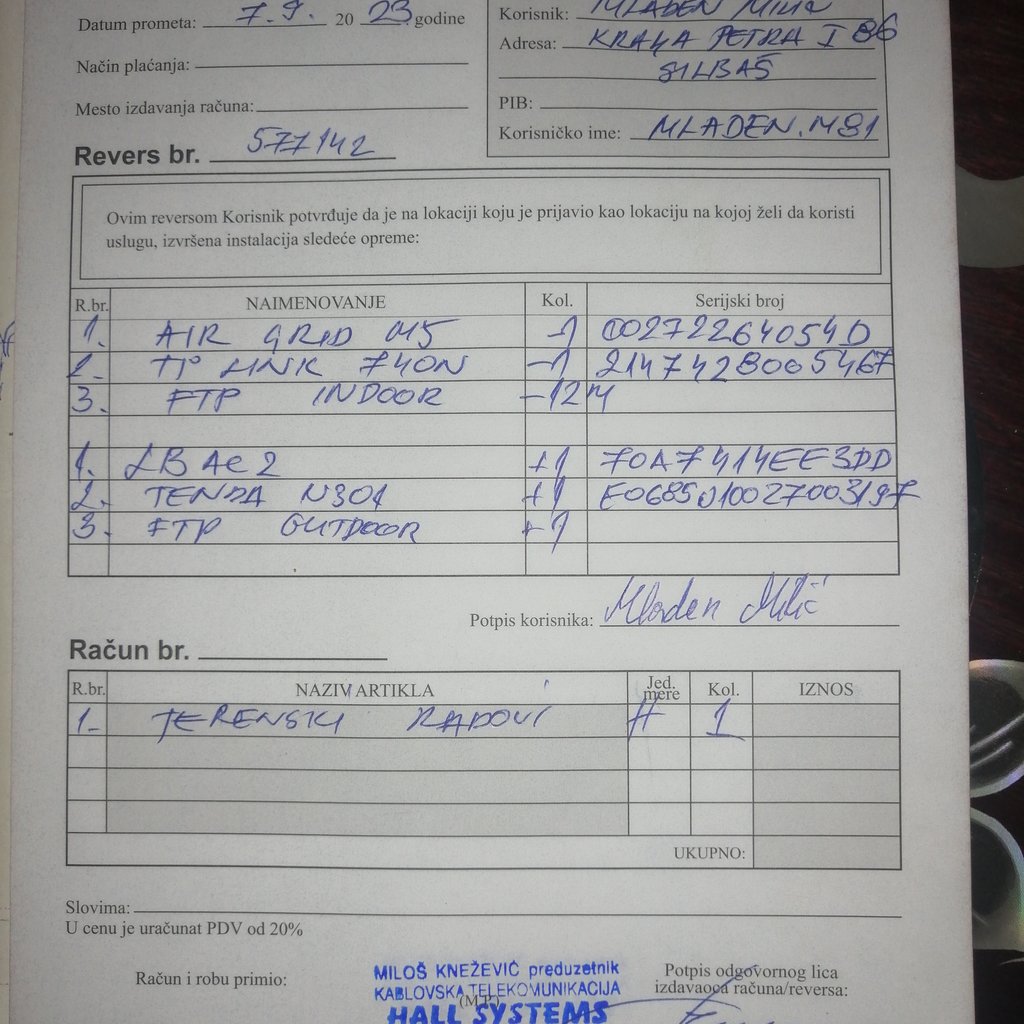 Datum prometa: 7.9. 2023 godine
Način plaćanja:
Mesto izdavanja računa:
Revers br. 577142
Korisnik: MLADEN MILIĆ
Adresa: KRALJA PETRA I 86
SILBAŠ
PIB:
Korisničko ime: MLADEN.M81
Ovim reversom Korisnik potvrđuje da je na lokaciji koju je prijavio kao lokaciju na kojoj želi da koristi
uslugu, izvršena instalacija sledeće opreme:
R.br. NAIMENOVANJE Kol. Serijski broj
1. AIR GRID M5 -1 00272264054D
2. TP LINK 740N -1 2147428005467
3. FTP INDOOR -12M
1. LB AC 2 +1 70A7414EE3DD
2. TENDA N301 +1 E0685010027003197
3. FTP OUTDOOR +1
Potpis korisnika: Mladen Milić
Račun br.
R.br. NAZIV ARTIKLA Jed. mere Kol. IZNOS
1. TERENSKI RADOVI H 1
UKUPNO:
Slovima:
U cenu je uračunat PDV od 20%
Račun i robu primio:
MILOŠ KNEŽEVIĆ preduzetnik
KABLOVSKA TELEKOMUNIKACIJA
(M.P.)
HALL SYSTEMS
Potpis odgovornog lica
izdavaoca računa/reversa: